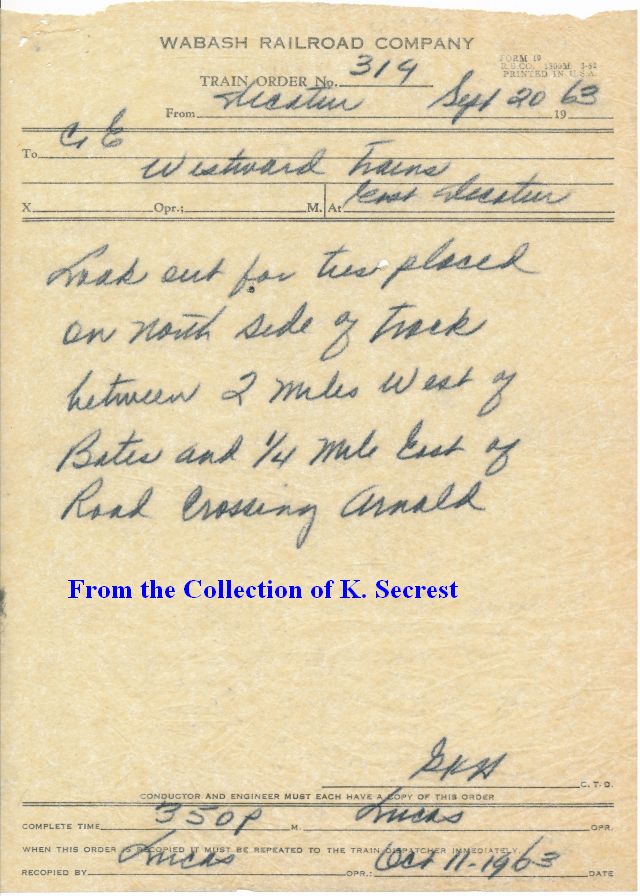 WABASH RAILROAD COMPANY
FORM 19
R.S CO. 1300M. 3-62
PRINTED IN U.S.A.
TRAIN ORDER No. 319
From Decatur Sept 20 1963
To C & E
Westward Trains
X Opr.; M. At East Decatur
Look out for ties placed
on north side of track
between 2 miles West of
Bates and 1/4 Mile East of
Road Crossing Arnold
From the Collection of K. Secrest
GKH C.T.D.
CONDUCTOR AND ENGINEER MUST EACH HAVE A COPY OF THIS ORDER
COMPLETE TIME 350P M. Lucas OPR.
WHEN THIS ORDER IS RECOPIED IT MUST BE REPEATED TO THE TRAIN DISPATCHER IMMEDIATELY.
RECOPIED BY Lucas OPR.: Oct 11-1963 DATE